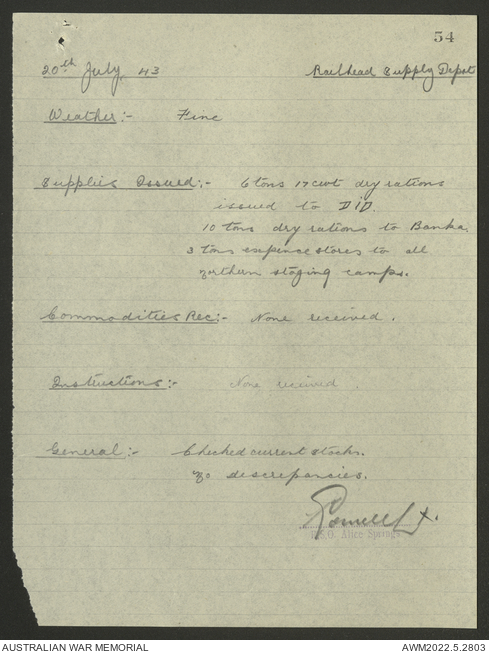 54
20th July 43 Railhead Supply Depot
Weather:- Fine
Supplies Issued:- 6 tons 17 cwt dry rations
issued to DID.
10 tons dry rations to Banka.
3 tons expense stores to all
northern staging camps.
Commodities Rec:- None received.
Instructions:- None received.
General:- Checked current stocks.
No discrepancies.
Lt.
R.S.O. Alice Springs
AUSTRALIAN WAR MEMORIAL AWM2022.5.2803